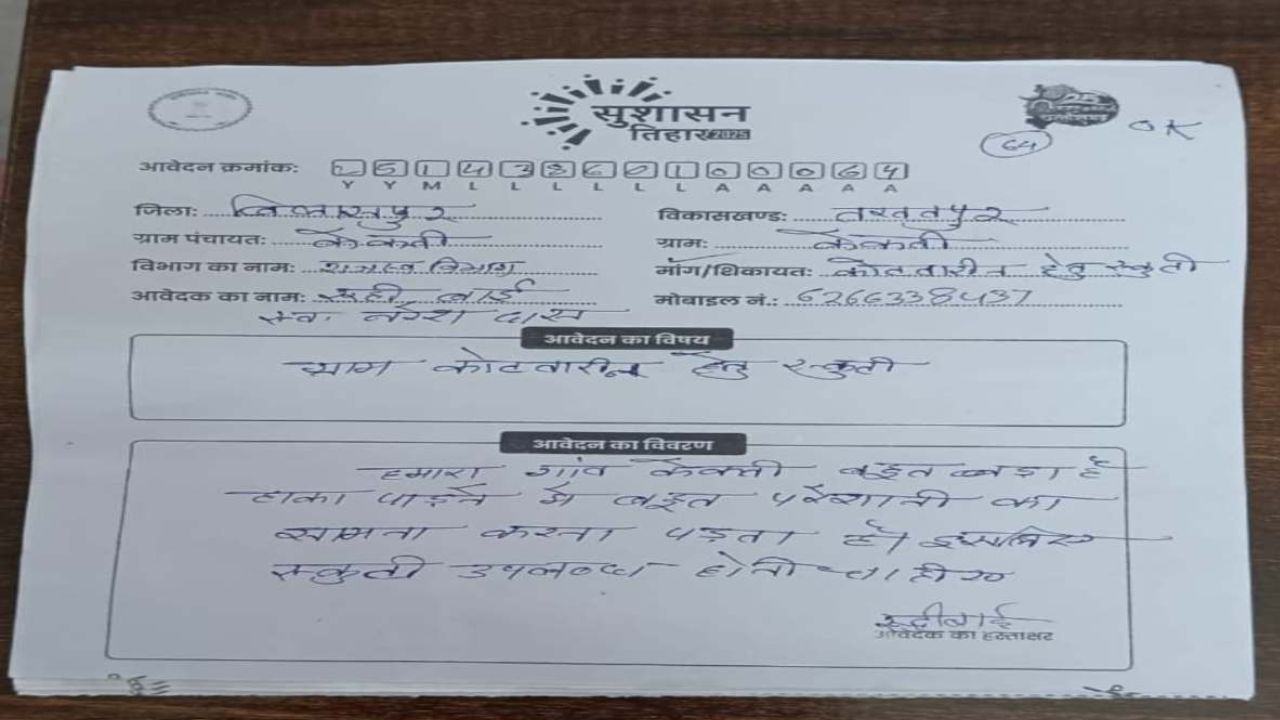 सुशासन
तिहार 2025
64
OK
आवेदन क्रमांक: 2 5 1 4 3 8 6 0 1 0 0 0 6 4
Y Y M L L L L L L A A A A A
जिला: बिलासपुर विकासखण्ड: तखतपुर
ग्राम पंचायत: केकती ग्राम: केकती
विभाग का नाम: राजस्व विभाग मॉग/शिकायत: कोटवारीन हेतु स्कुती
आवेदक का नाम: रूही बाई मोबाइल नं.: 6266338437
स्व. नरेश दास
आवेदन का विषय
ग्राम कोटवारीन हेतु स्कुती
आवेदन का विवरण
हमारा गांव केकती बहुत बड़ा है
हाका पाड़ने में बहुत परेशानी का
सामना करना पड़ता है। इसलिए
स्कुती उपलब्ध होनी चाहीए
रूहीबाई
आवेदक का हस्ताक्षर